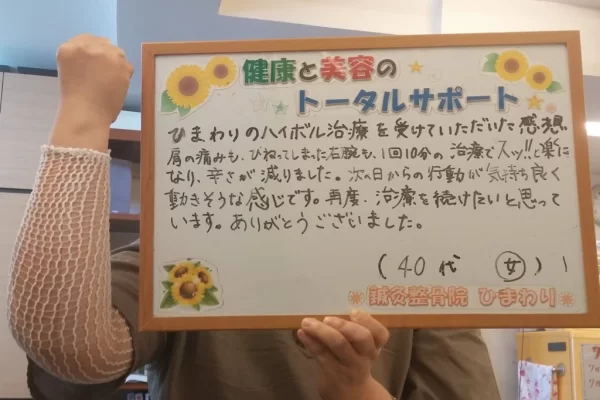 健康と美容の
トータルサポート
ひまわりのハイボル治療を受けていただいた感想
肩の痛みも、ひねってしまった右腕も、1回10分の治療でスッ!!と楽に
なり、辛さが減りました。次の日からの行動が気持ち良く
動きそうな感じです。再度、治療を続けたいと思って
います。ありがとうございました。
(40代 女)
鍼灸整骨院 ひまわり